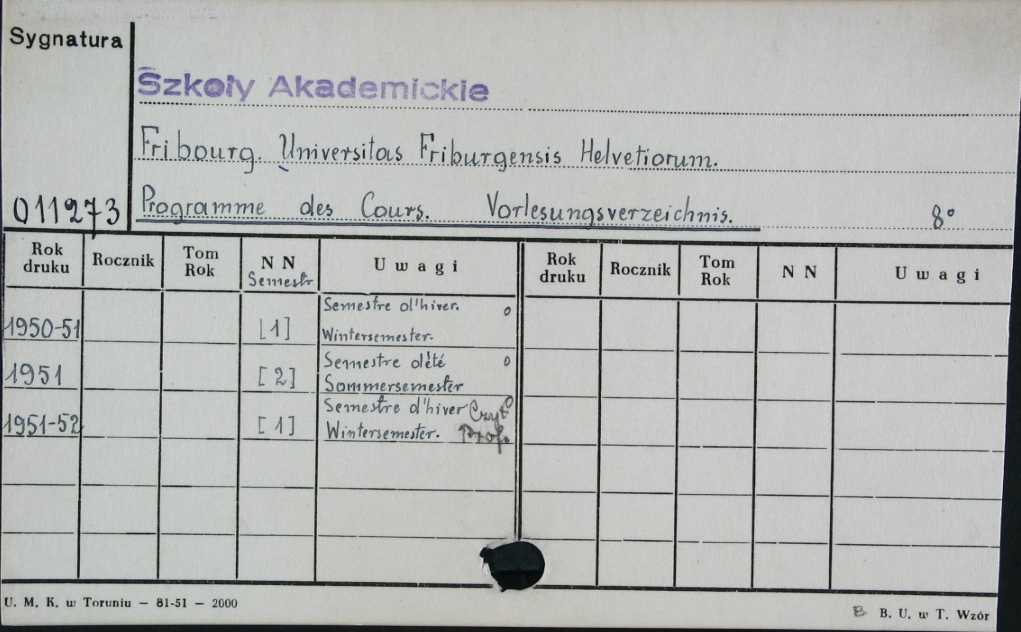 Sygnatura
Szkoły Akademickie
Fribourg. Universitas Friburgensis Helvetiorum.
011273 Programme des Cours. Vorlesungsverzeichnis. 8°
Rok druku Rocznik Tom Rok N N Semestr Uwagi Rok druku Rocznik Tom Rok N N Uwagi
Semestre d'hiver. o
1950-51 [1] Wintersemester.
Semestre d'été o
1951 [2] Sommersemester
Semestre d'hiver
1951-52 [1] Wintersemester. Prof.
U. M. K. w Toruniu — 81-51 — 2000
B B. U. w T. Wzór